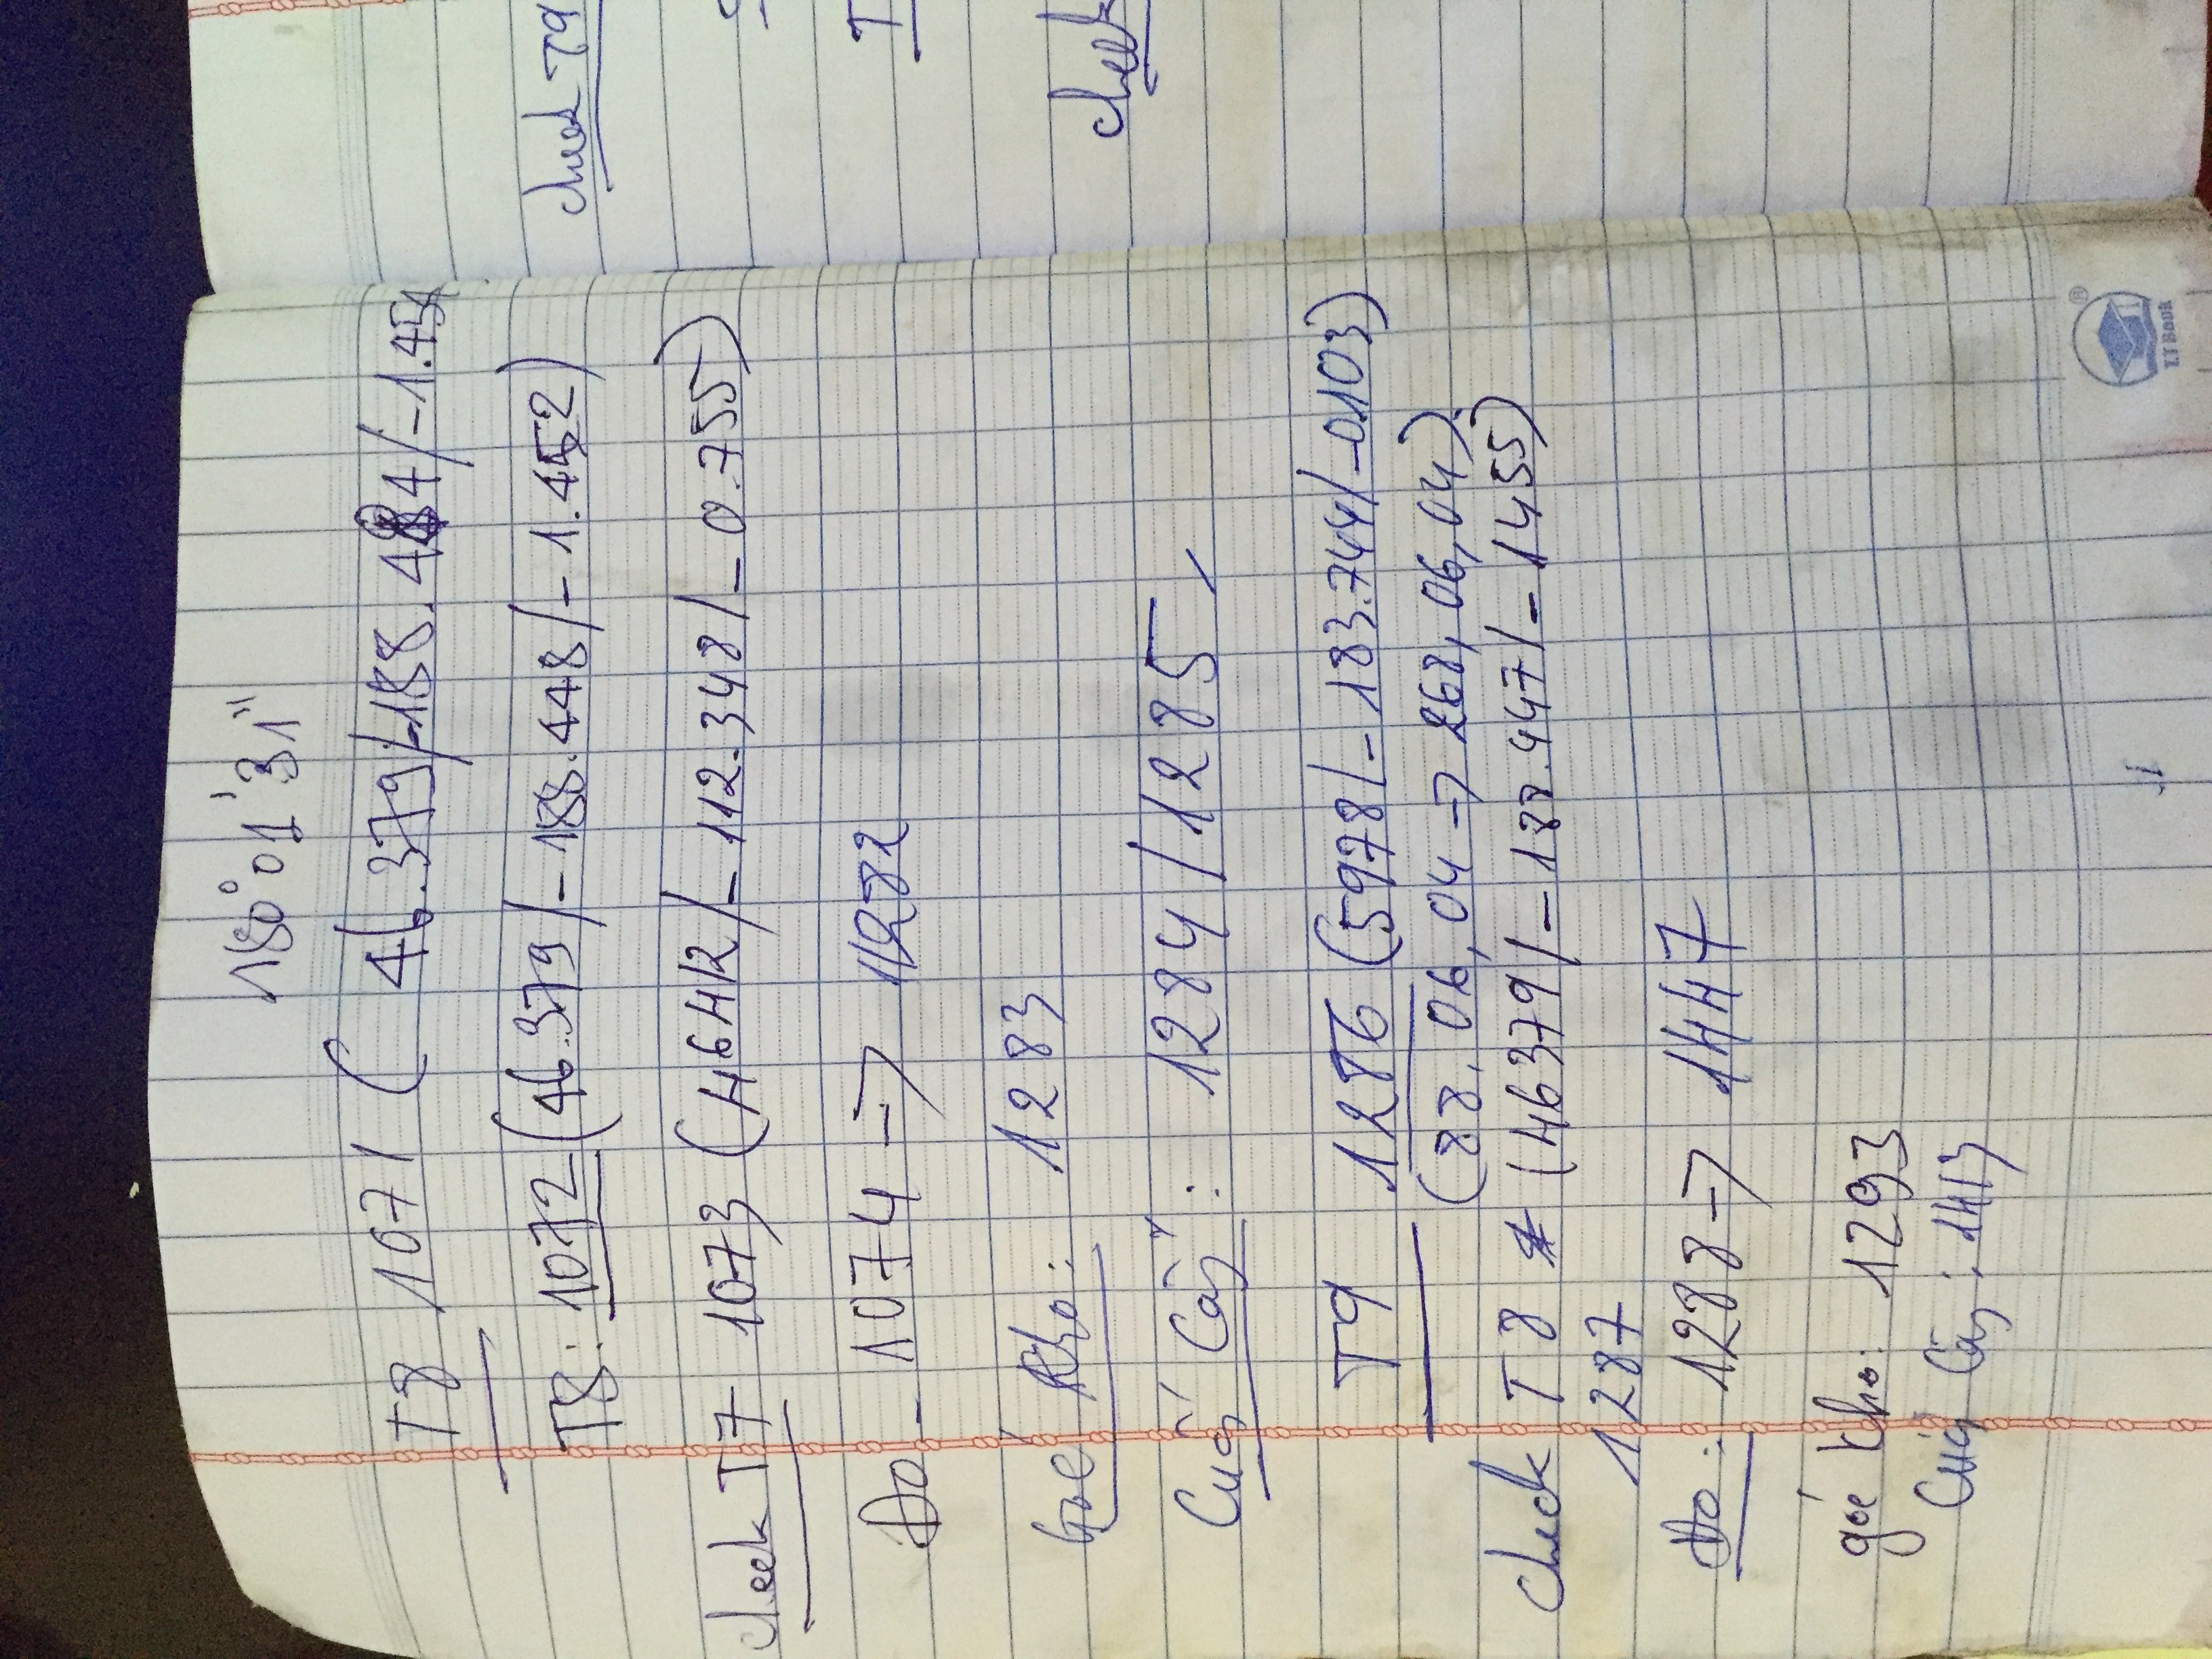 180°01'31"
T8 1071 ( 46.379/-188.484/-1.454
T8: 1072 (46.379/-188.448/-1.452)
check T7 1073 (46412/-112.348/-0.755)
Đo - 1074 -> 1282
Góc kho: 1283
Cuối Cầy: 1284/1285
T9 1286 (5978/-183.744/-0103)
(88, 06, 04 -> 268, 06, 04)
check T8 (46379/-188.447/-1455)
1287
Đo: 1288 -> 1447
góc kho: 1293
Cuối Cầy: 1413
T.T Book
check T9
T
check